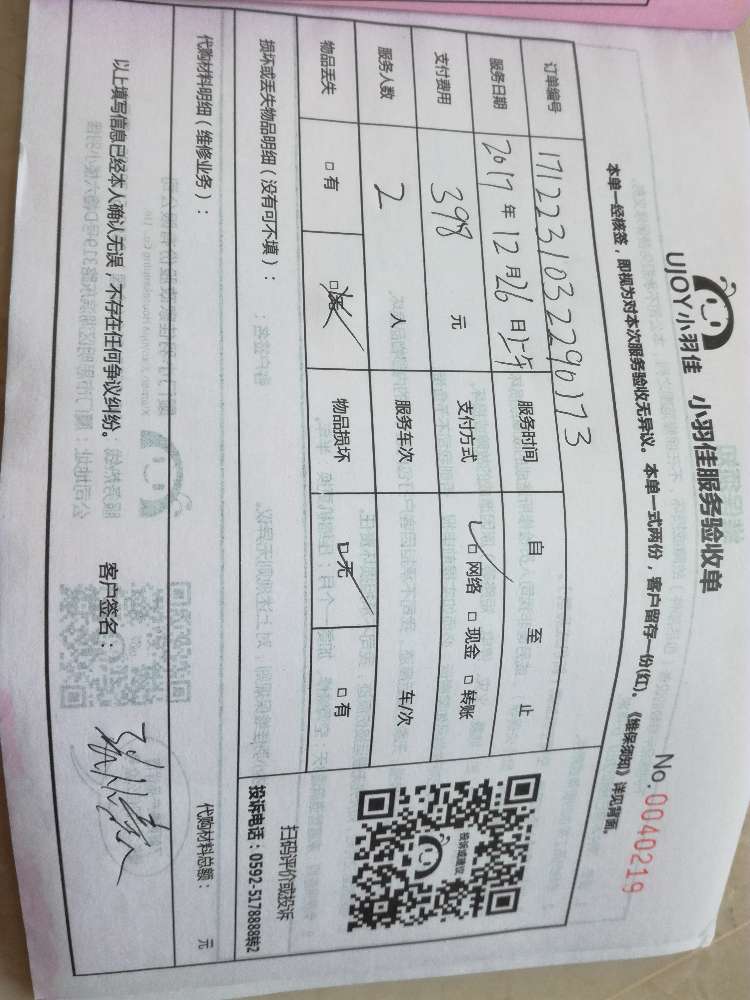 UJOY小羽佳 小羽佳服务验收单
No. 0040219
本单一经核签，即视为对本次服务验收无异议。本单一式两份，客户留存一份(红)。《维保须知》详见背面。
订单编号 1712231032290173
服务日期 2017年12月26日上午 服务时间 自 至 止
支付费用 398 元 支付方式 ☑ 网络 □ 现金 □ 转账
服务人数 2 人 服务车次 车/次
物品丢失 □ 有 ☑ 无 物品损坏 ☑ 无 □ 有
投诉或建议
扫码评价或投诉
投诉电话：0592-5178888转2
损坏或丢失物品明细（没有可不填）：
代购材料明细（维修业务）：
代购材料总额： 元
以上填写信息已经本人确认无误，不存在任何争议纠纷。 客户签名：